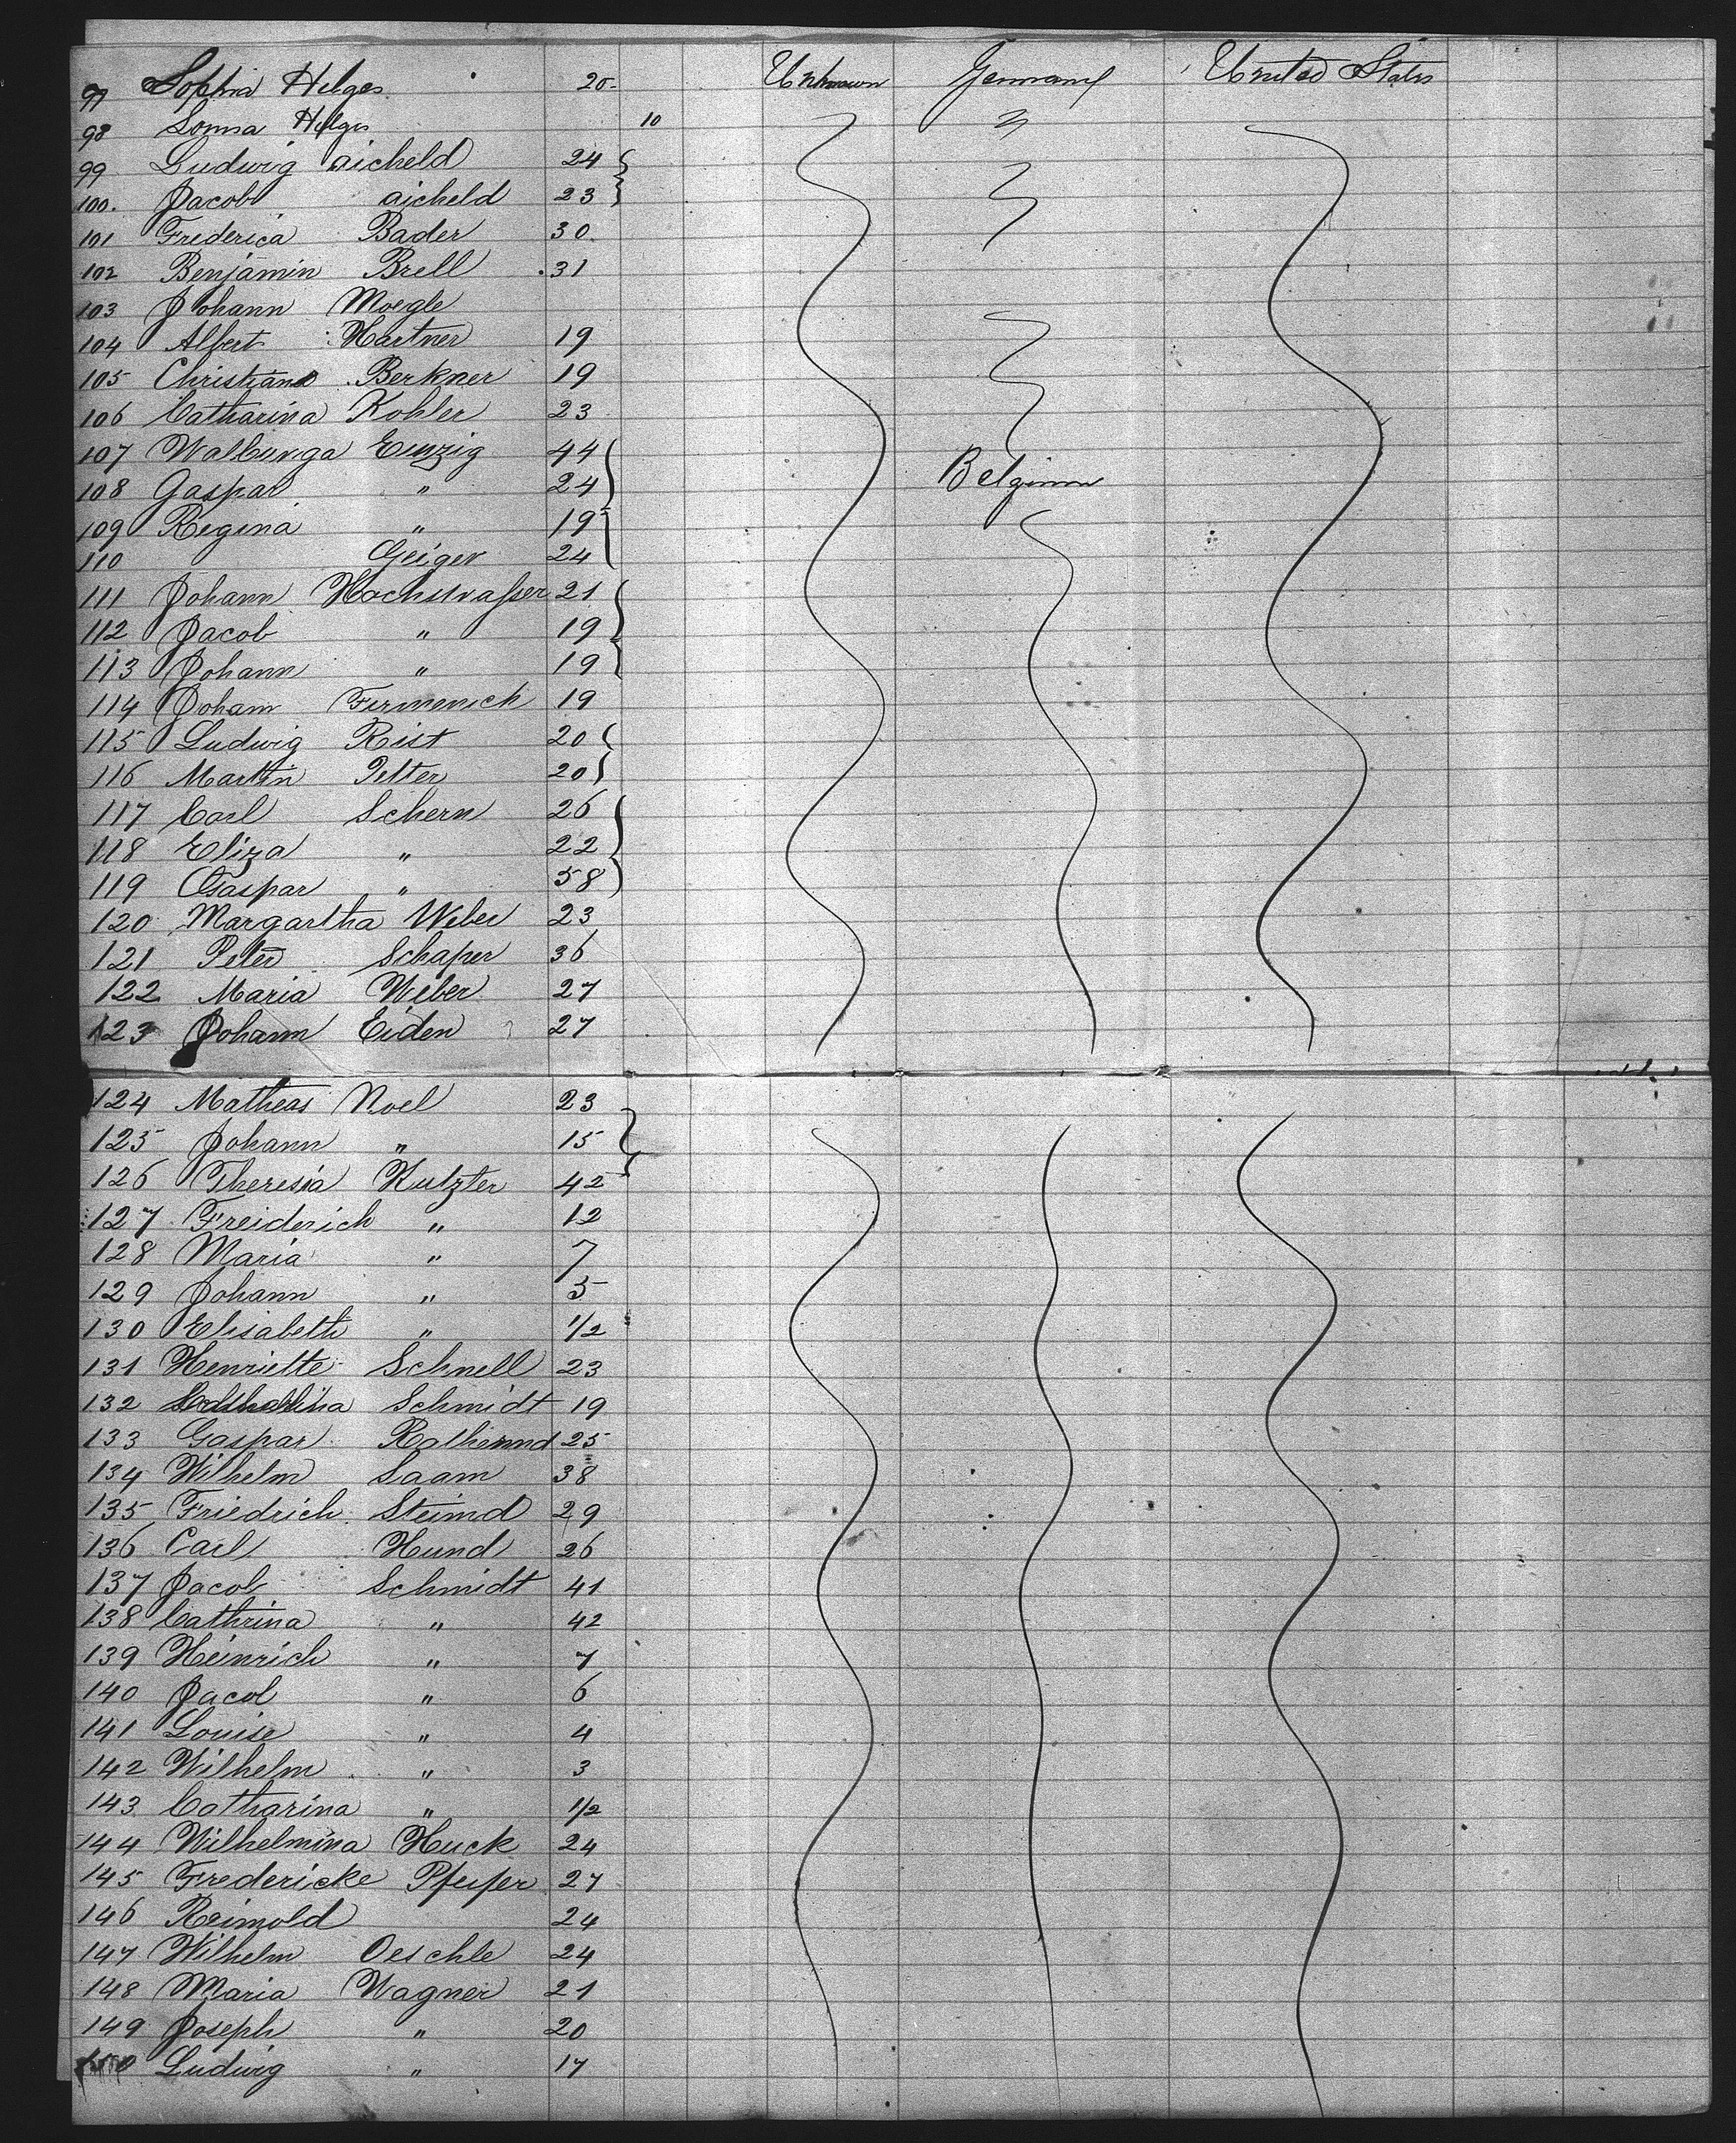 97 Sophia Helges 20 Unknown Germany United States
98 Helges 10
99 Ludwig aicheld 24
100. Jacob aicheld 23
101 Frederica Bader 30
102 Benjamin Brell 31
103 Johann Moegle
104 Albert Hartner 19
105 Christiana Berkner 19
106 Catharina Kohler 23
107 Walburga Einzig 44
108 Gaspar " 24 Belgium
109 Regina " 19
110 Geiger 24
111 Johann Hochstrasser 21
112 Jacob " 19
113 Johann " 19
114 Joham Firmenich 19
115 Ludwig Rist 20
116 Martin Petter 20
117 Carl Schern 26
118 Eliza " 22
119 Gaspar " 58
120 Margartha Weber 23
121 Peter Schaper 36
122 Maria Weber 27
123 Johann Eiden 27
124 Matheas Noel 23
125 Johann " 15
126 Theresia Kutzter 42
127 Freiderich " 12
128 Maria " 7
129 Johann " 5
130 Elisabeth " 1/2
131 Henriette Schnell 23
132 Schmidt 19
133 Gaspar 25
134 Wilhelm Laam 38
135 Friedrich Steimd 29
136 Carl Hund 26
137 Jacob Schmidt 41
138 Cathrina " 42
139 Heinrich " 7
140 Jacob " 6
141 Louise " 4
142 Wilhelm " 3
143 Catharina " 1/2
144 Wilhelmina Huck 24
145 Fredericke Pfeifer 27
146 Reimold 24
147 Wilhelm Oeschle 24
148 Maria Wagner 21
149 Joseph " 20
150 Ludwig " 17